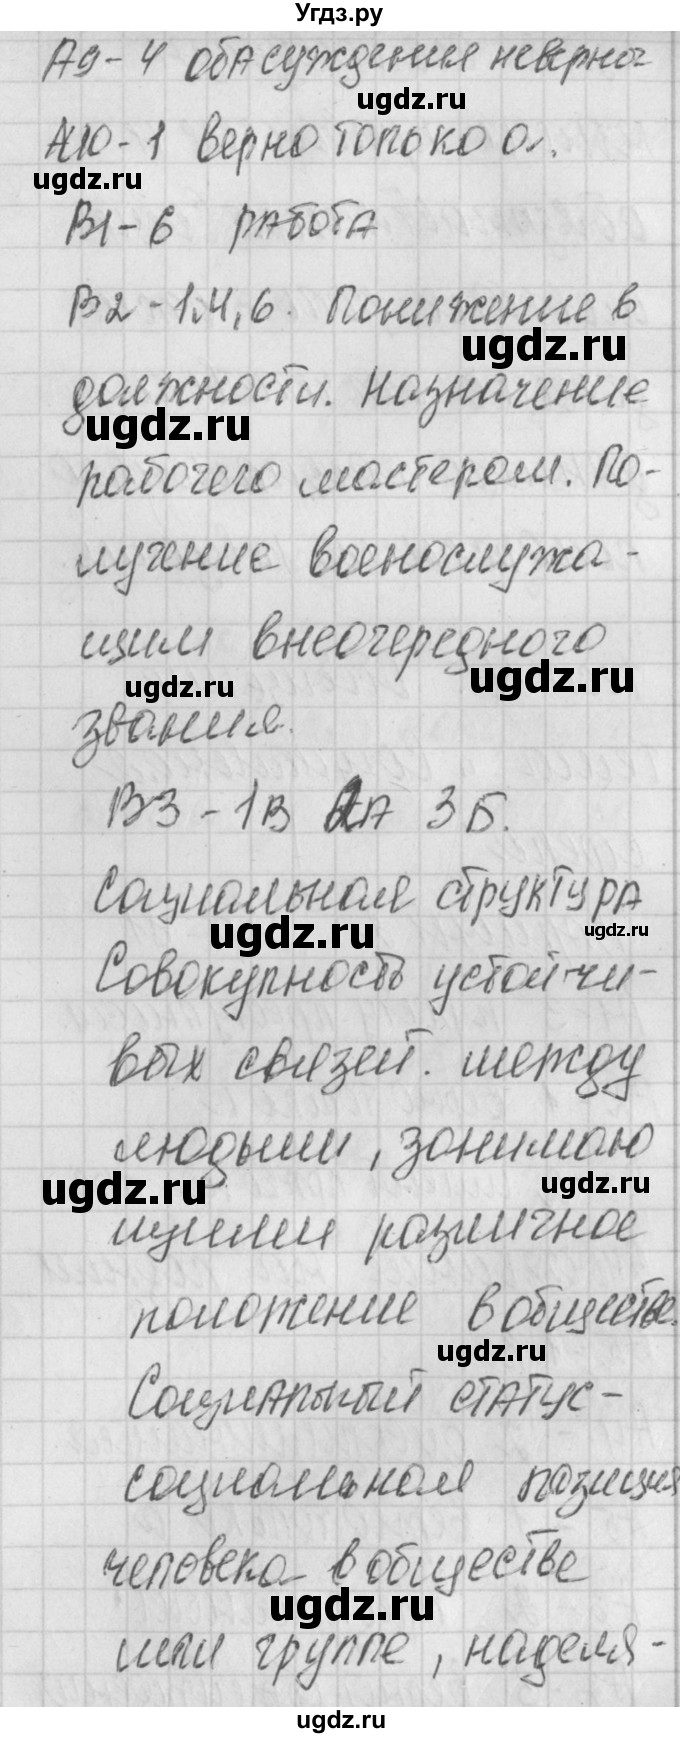 Угдз.ру
А9-4 оба суждения неверно
ugdz.ru
А10-1 верно только
ugdz.ru
В1-6 работа
В2-1,4,6. Понижение в
ugdz.ru
должности. Назначение
ugdz.ru
рабочего мастером. По-
лучение военослужа-
щим внеочередного
ugdz.ru ugdz.ru
звания.
В3-1В 2А 3Б.
Социальная структура
ugdz.ru ugdz.ru
Совокупность устойчи-
вых связей. между
людьми, занимаю
ugdz.ru ugdz.ru
щими различное
положение в обществе.
ugdz.ru
Социальный статус-
социальная позиция
человека в обществе
ugdz.ru
или группе, наделя-
ugdz.ru